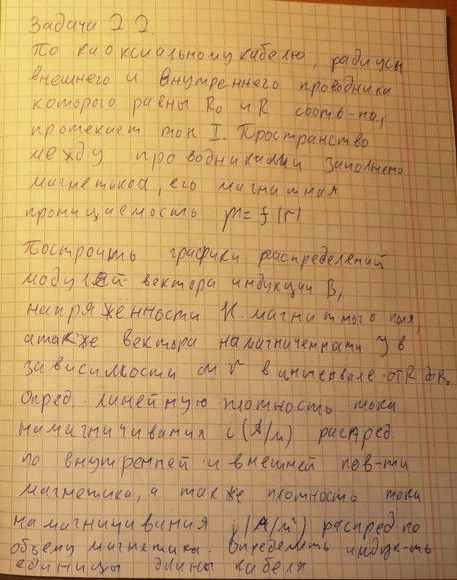 Задача 2.2.
По каоксиальному кабелю, радиусы
внешнего и внутреннего проводника
которого равны R₀ и R соотв-но,
протекает ток I. Пространство
между проводниками заполнено
магнетиком, его магнитная
проницаемость μ = f(r)
Построить графики распределений
модулей вектора индукции B,
напряженности H магнитного поля,
а также вектора намагниченности J в
зависимости от r в интервале от R до R₀
Опред. линейную плотность тока
намагничивания i (А/м) распред
по внутренней и внешней пов-ти
магнетика, а также плотность тока
намагничивания j (А/м²) распред по
объему магнетика. Определить индук-ть
единицы длины кабеля